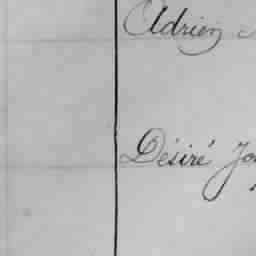 Adrien
Désiré